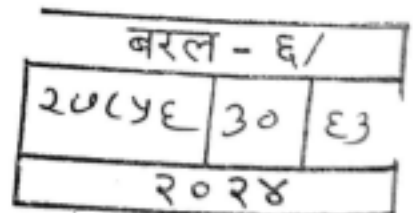 बरल - ६/
२७८५६ ३० ६३
२०२४